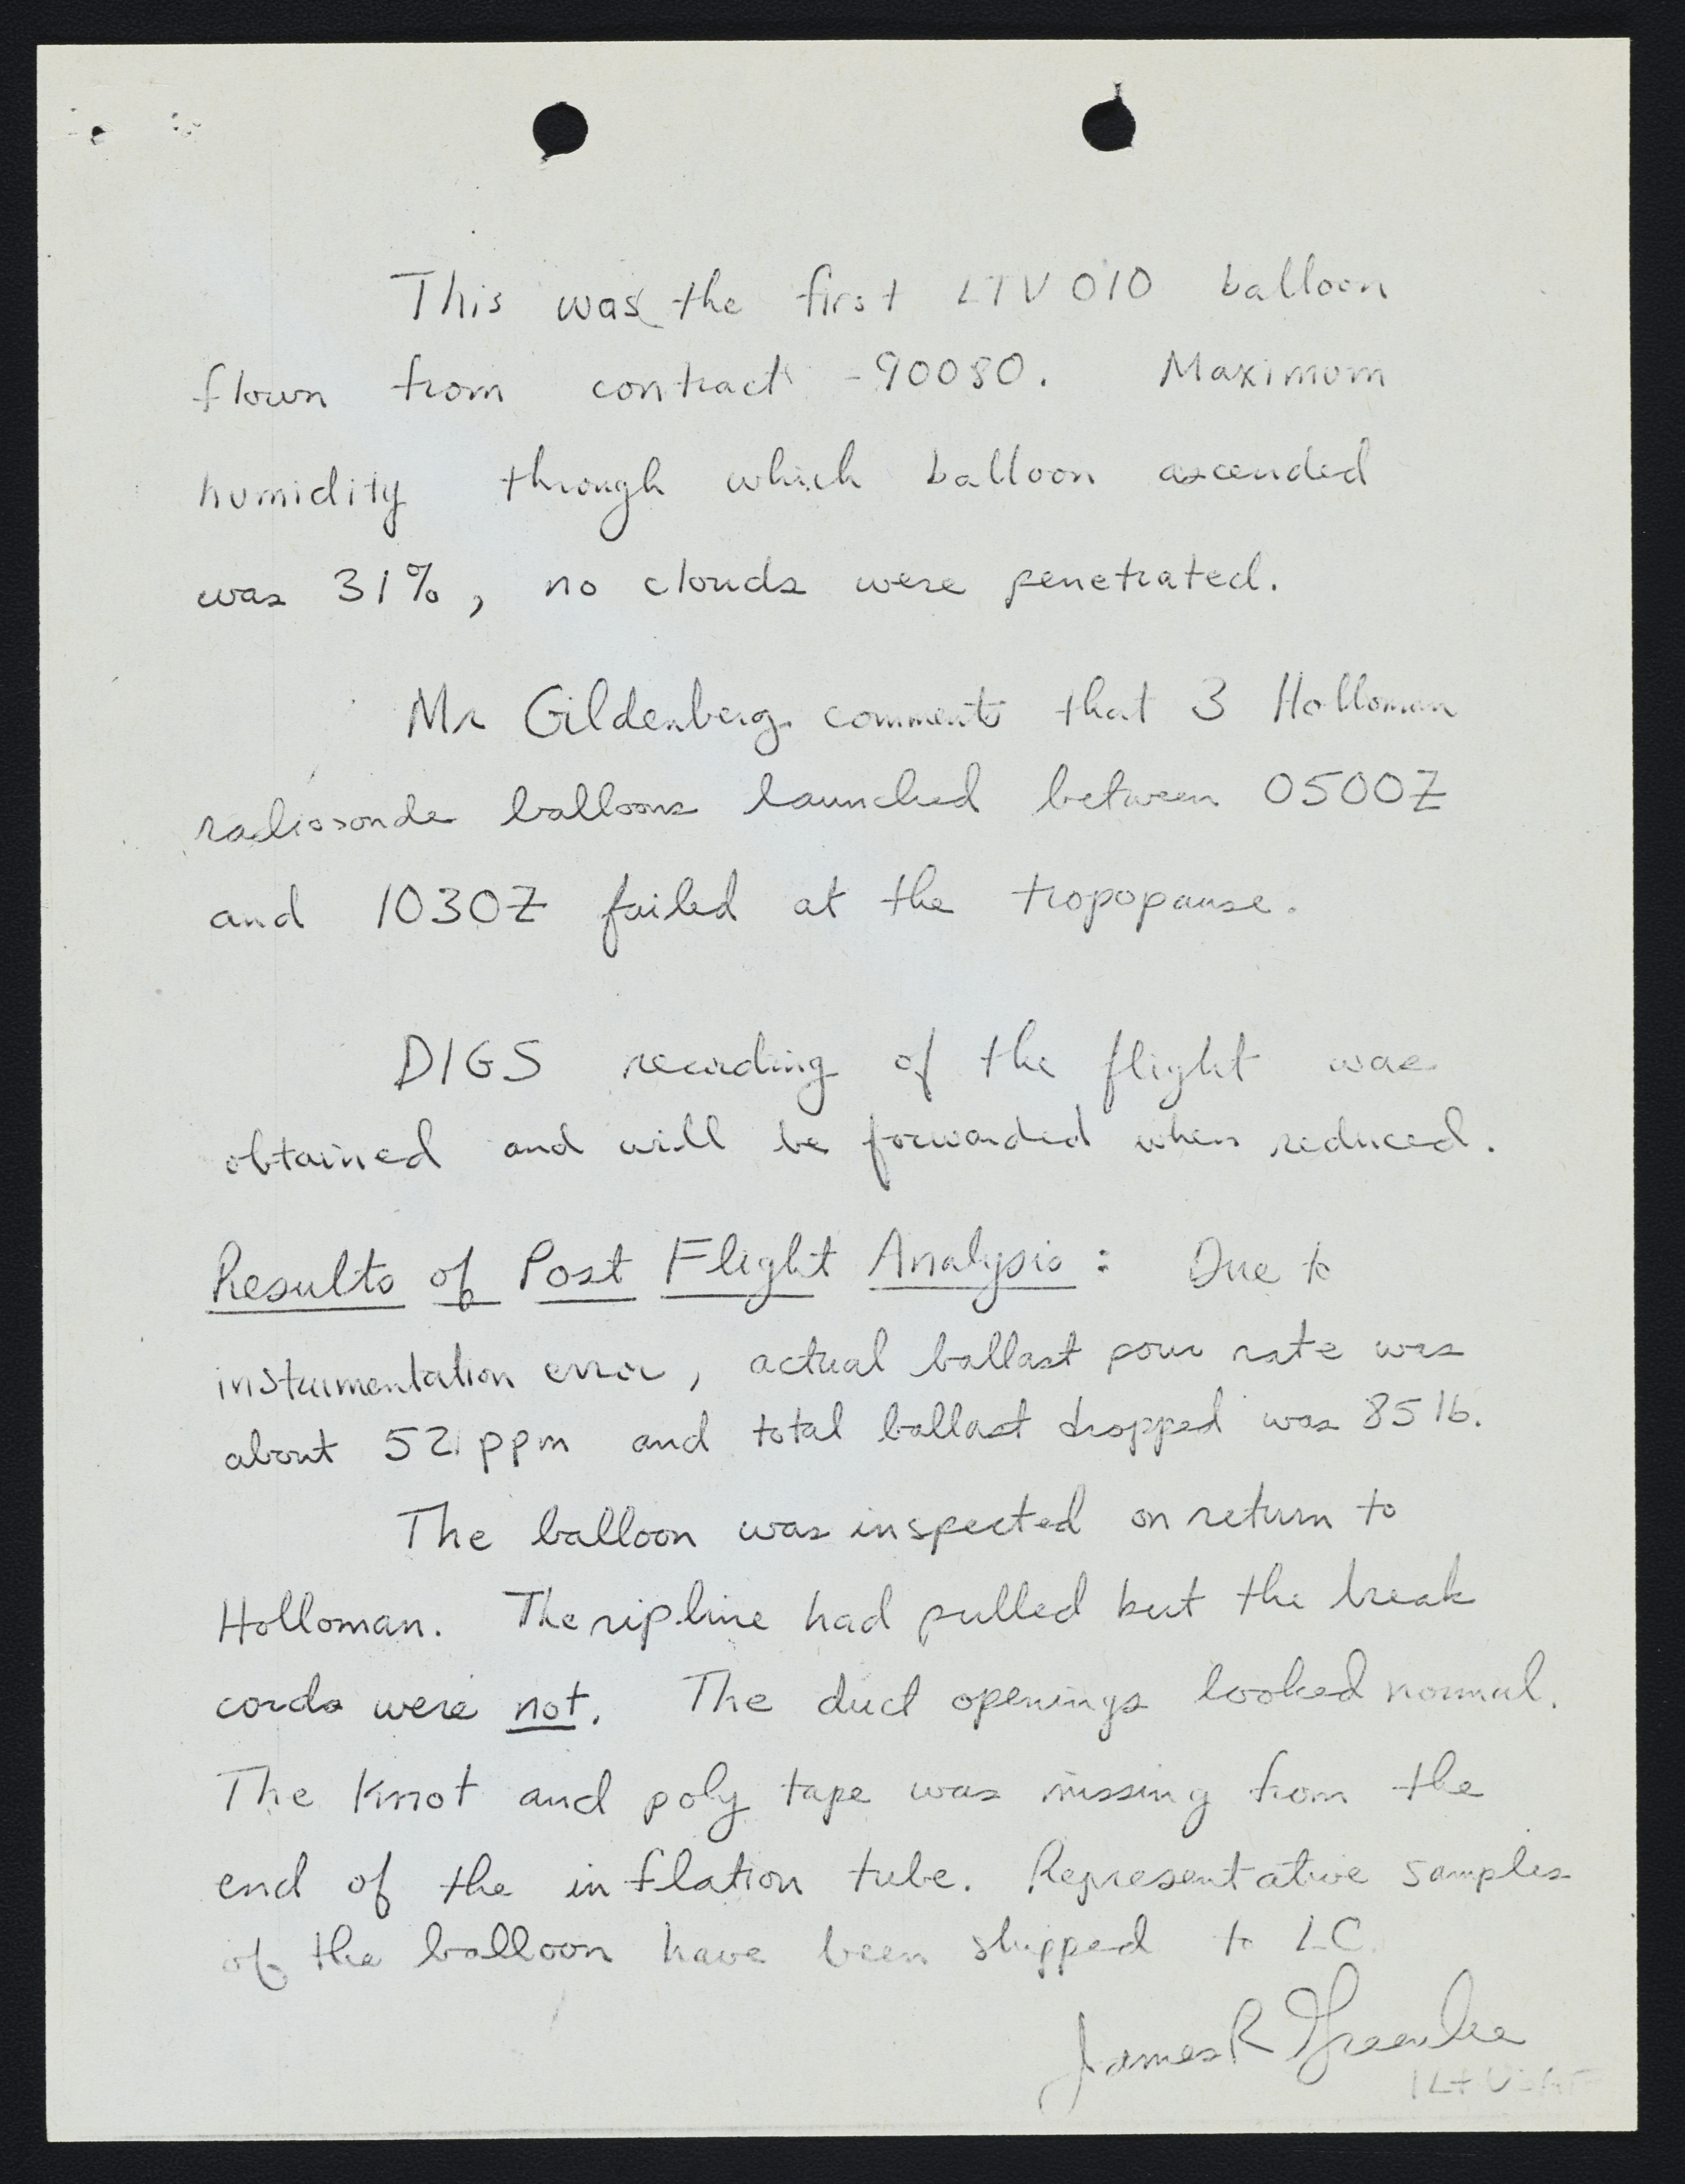 This was the first LTV 010 balloon
flown from contract -90080. Maximum
humidity through which balloon ascended
was 31%, no clouds were penetrated.
Mr Gildenberg comments that 3 Holloman
radiosonde balloons launched between 0500Z
and 1030Z failed at the tropopause.
DIGS recording of the flight was
obtained and will be forwarded when reduced.
Results of Post Flight Analysis: Due to
instrumentation error, actual ballast pour rate was
about ppm and total ballast dropped was 85 lb.
The balloon was inspected on return to
Holloman. The ripline had pulled but the break
cords were not. The duct openings looked normal.
The knot and poly tape was missing from the
end of the inflation tube. Representative samples
of the balloon have been shipped to LC.
James R Greenlee
1Lt USAF